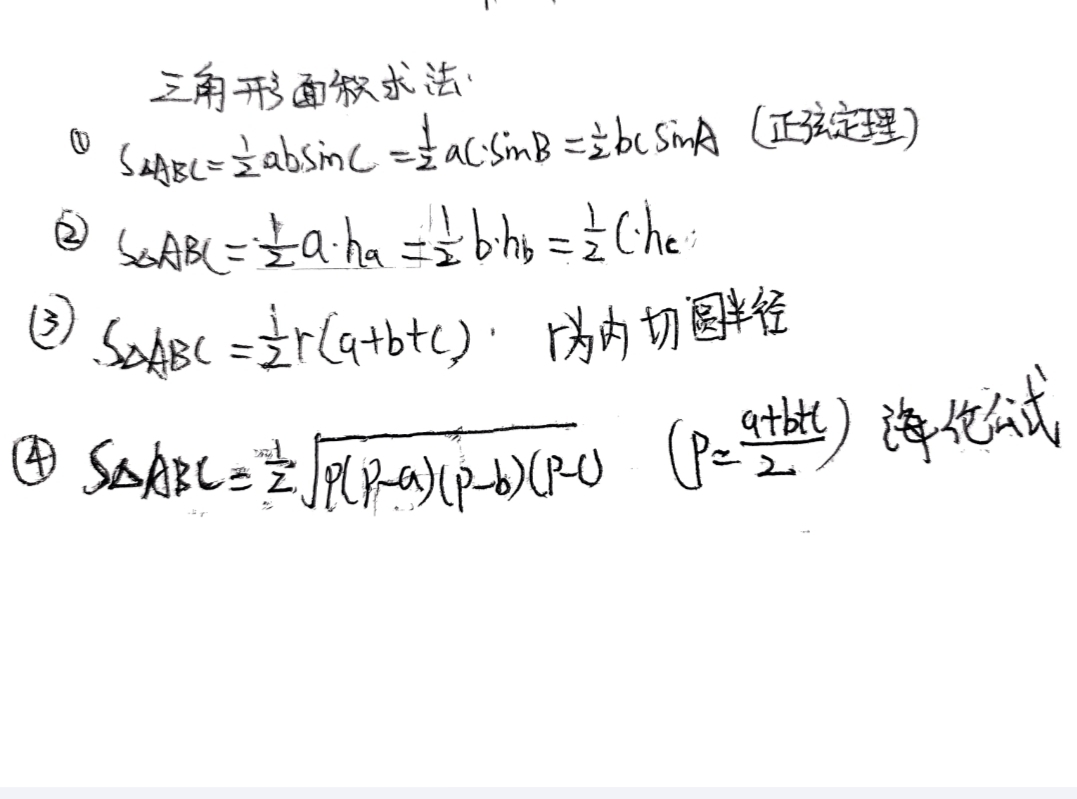 三角形面积求法:
① S△ABC=½absinC=½ac·sinB=½bcsinA (正弦定理)
② S△ABC=½a·ha=½b·hb=½c·hc
③ S△ABC=½r(a+b+c). r为内切圆半径
④ S△ABC=½√p(p-a)(p-b)(p-c) (p=a+b+c/2) 海伦公式